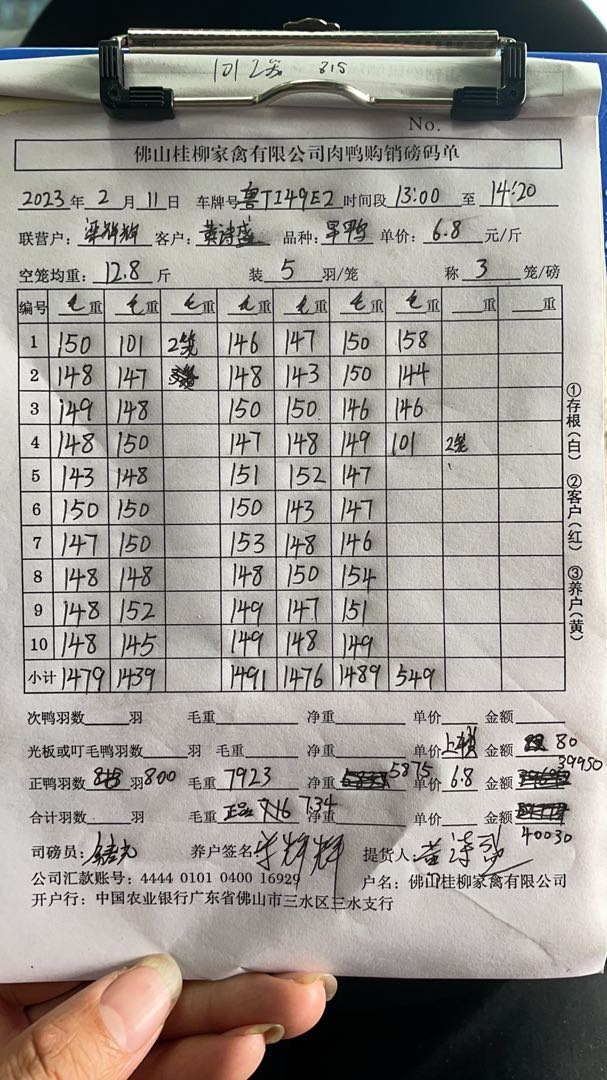 101 2笼 815
No.
佛山桂柳家禽有限公司肉鸭购销磅码单
2023年 2 月 11 日 车牌号 粤TI49E2 时间段 13:00 至 14:20
联营户: 梁辉辉 客户: 黄诗盛 品种: 单价: 6.8 元/斤
空笼均重: 12.8 斤 装 5 羽/笼 称 3 笼/磅
编号 毛重 毛重 毛重 毛重 毛重 毛重 毛重 重 重
1 150 101 2笼 146 147 150 158
2 148 147 148 143 150 144
3 149 148 150 150 146 146
4 148 150 147 148 149 101 2笼
5 143 148 151 152 147
6 150 150 150 143 147
7 147 150 153 148 146
8 148 148 148 150 154
9 148 152 149 147 151
10 148 145 149 148 149
小计 1479 1439 1491 1476 1489 549
①存根(白) ②客户(红) ③养户(黄)
次鸭羽数 羽 毛重 净重 单价 金额
光板或叮毛鸭羽数 羽 毛重 净重 单价 金额 80
正鸭羽数 800 羽 毛重 7923 净重 5875 单价 6.8 金额 39950
合计羽数 羽 毛重 正品 716 净重 7.34 单价 金额 40030
司磅员: 养户签名: 梁辉辉 提货人: 黄诗盛
公司汇款账号: 4444 0101 0400 16929 户名: 佛山桂柳家禽有限公司
开户行: 中国农业银行广东省佛山市三水区三水支行